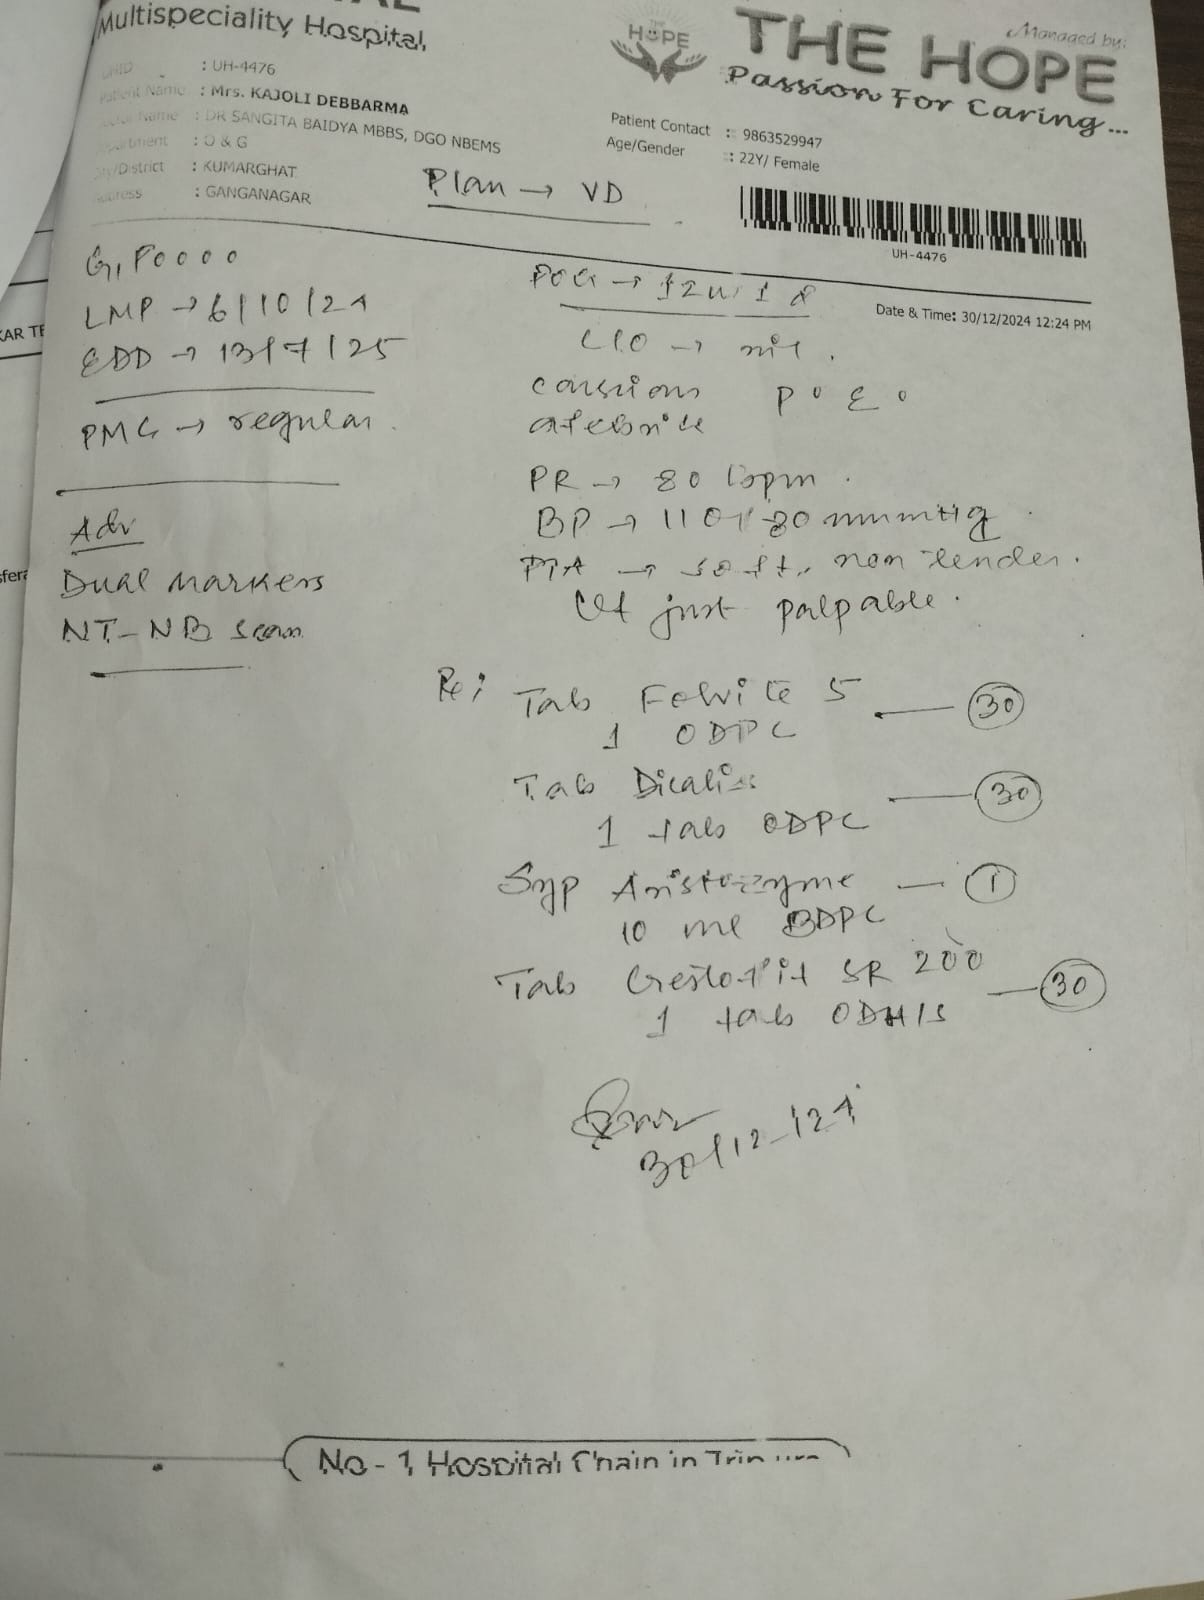 Multispeciality Hospital
Managed by:
HOPE
THE HOPE
Passion For Caring...
UHID : UH-4476
Patient Name : Mrs. KAJOLI DEBBARMA
Name : DR SANGITA BAIDYA MBBS, DGO NBEMS
: O & G
/District : KUMARGHAT
: GANGANAGAR
Patient Contact : 9863529947
Age/Gender : 22Y/ Female
Plan → VD
UH-4476
Date & Time: 30/12/2024 12:24 PM
G1 P0000
LMP → 6/10/24
EDD → 13/7/25
PMC → regular.
Adv
Dual Markers
NT-NB scan
POG → 12w 1d
C/O → nil.
conscious P° E°
afebrile
PR → 80 bpm.
BP → 110/80 mmHg.
P/A → soft, non tender.
Ut just palpable.
Rx;
Tab Folvite 5 — 30
1 ODPC
Tab Dicalis — 30
1 tab ODPC
Syp Aristozyme — 1
10 ml BDPC
Tab Gestofit SR 200 — 30
1 tab ODHS
30/12/24
No - 1 Hospital Chain in Tripura
KAR TE
sfera